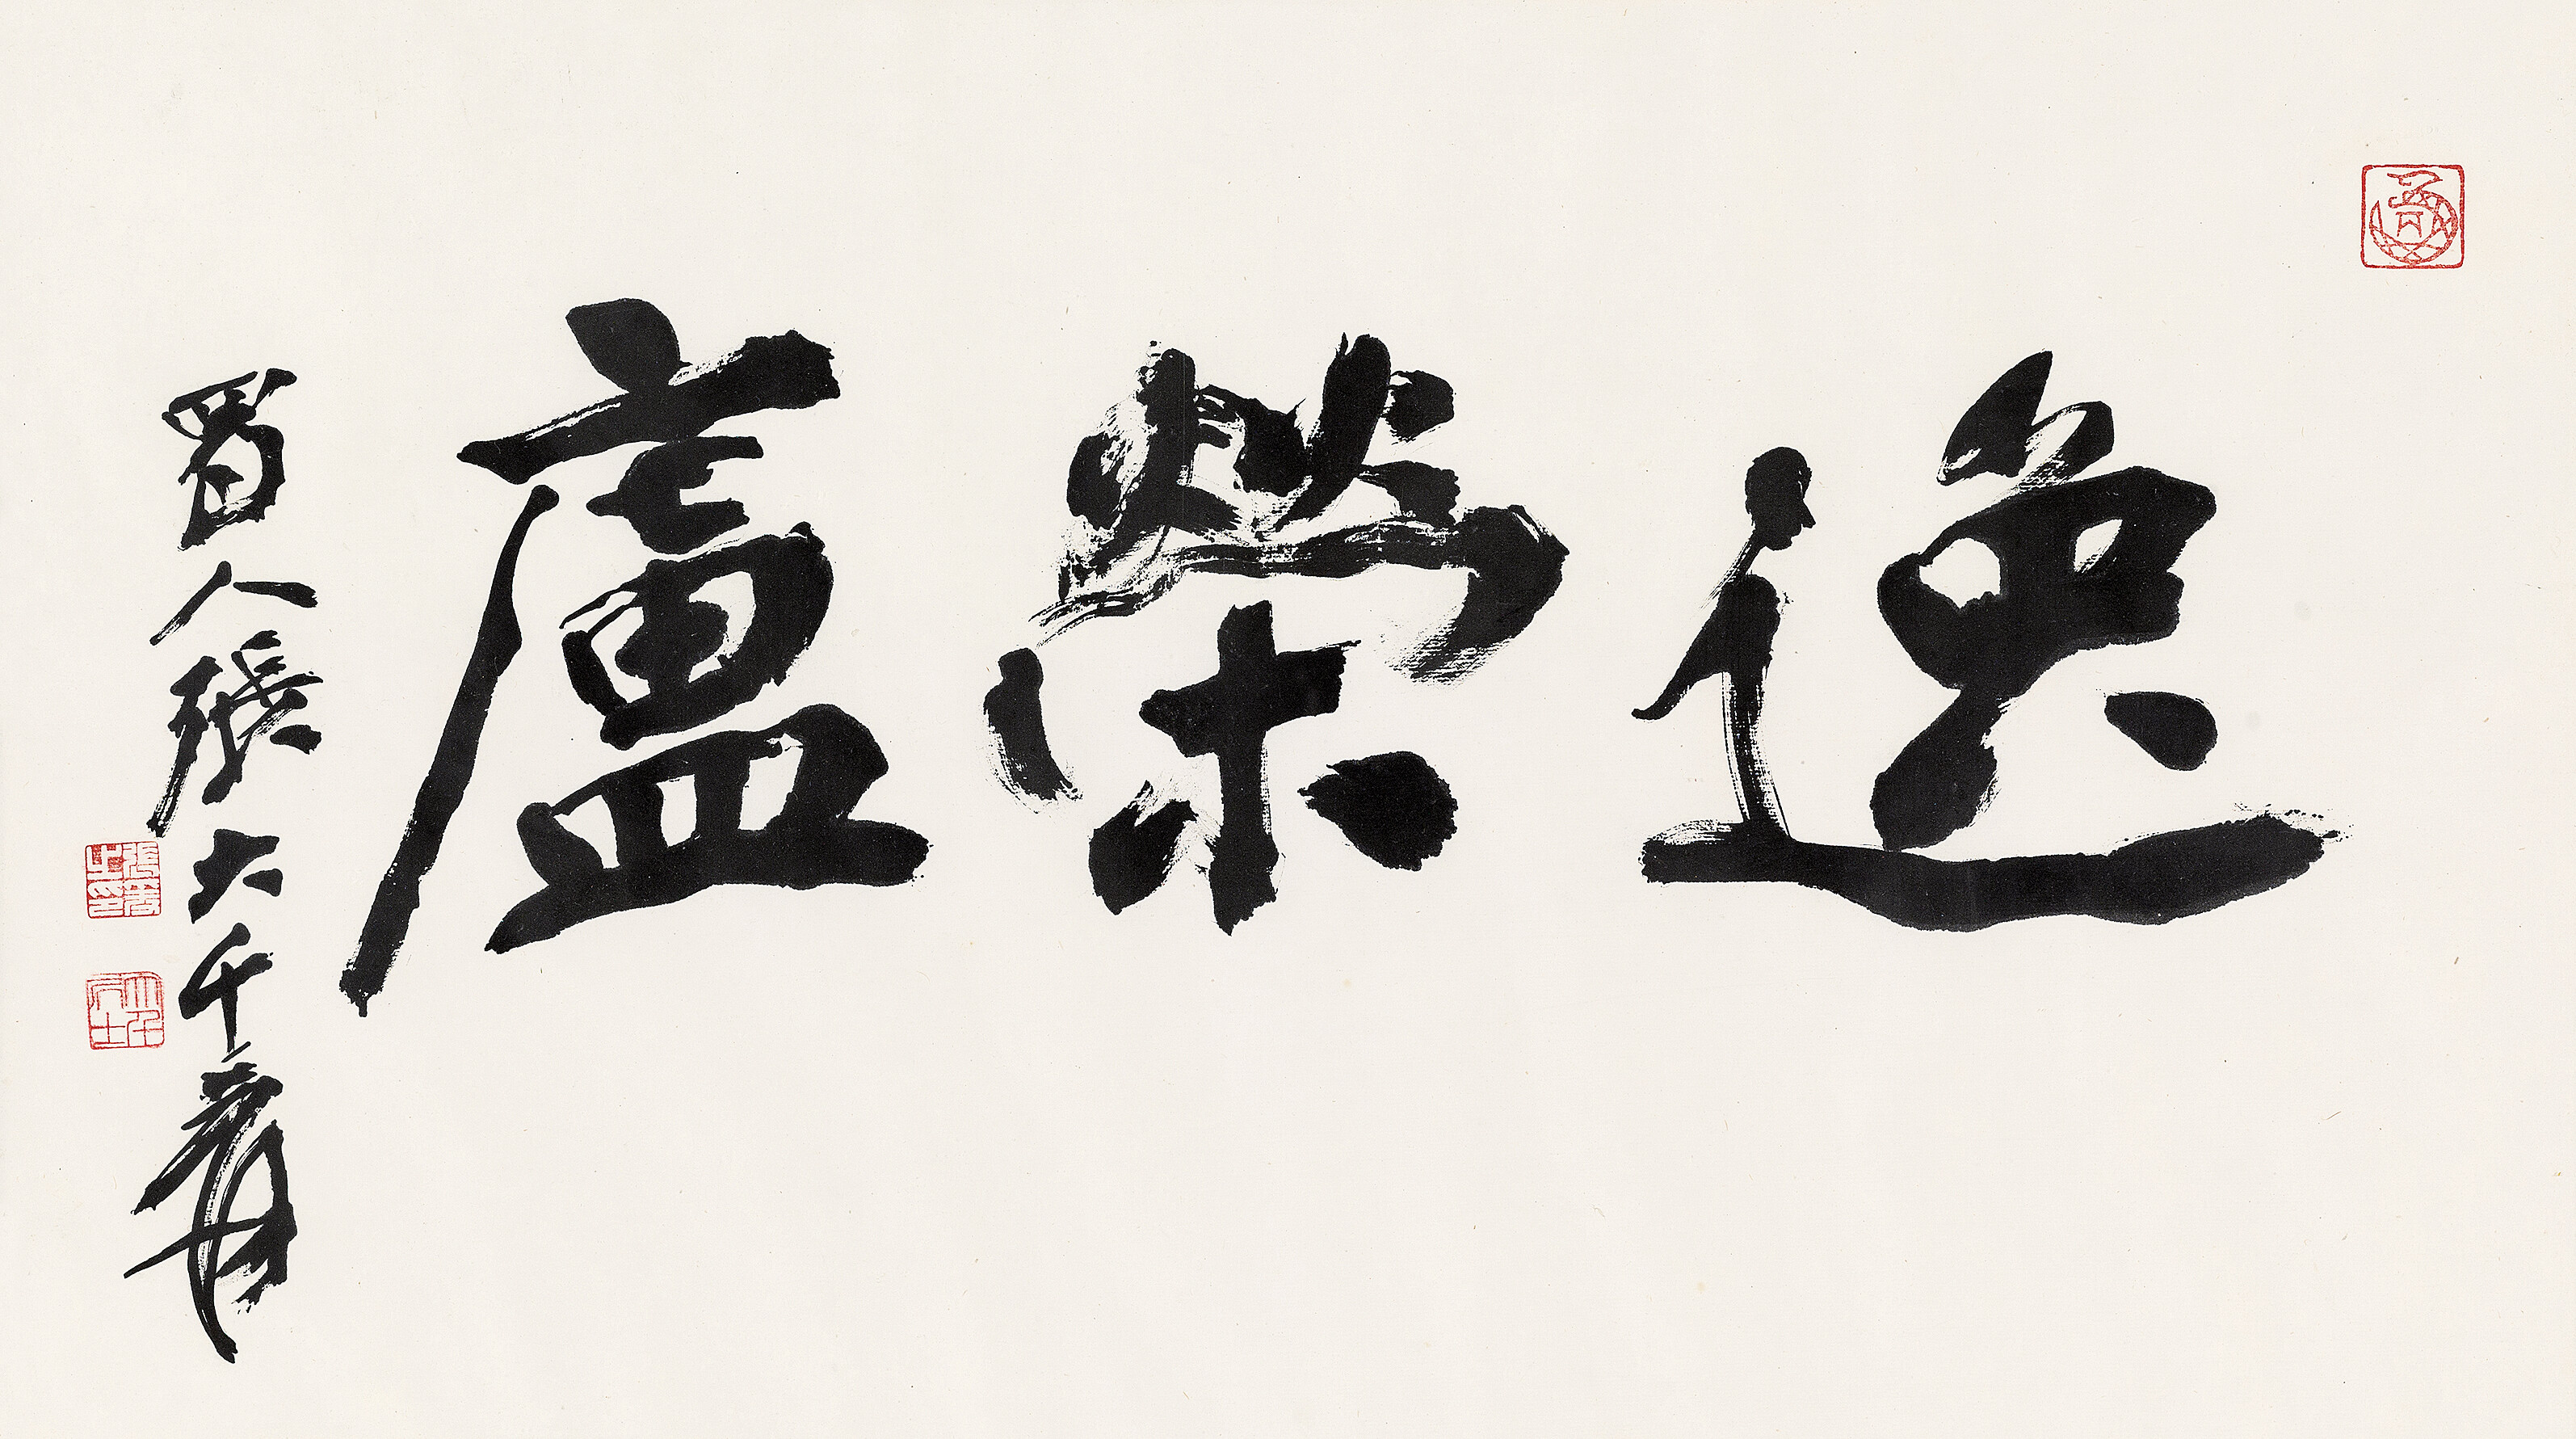 逸榮廬
蜀人張大千爰
張爰之印
大千居士